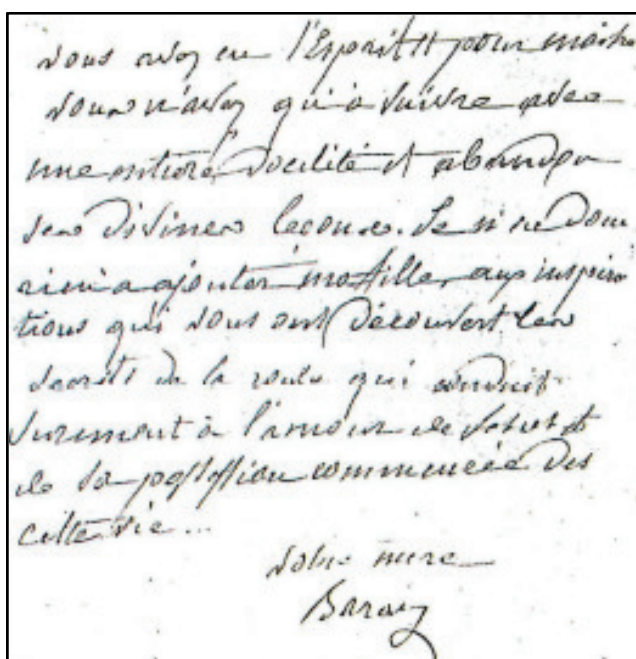 vous avez eu l'Esprit St pour maître
vous n'avez qu'à suivre avec
une entière docilité et abandon
ses divines leçons. Je n'ai donc
rien a ajouter ma fille, aux inspira
tions qui vous ont découvert les
secrets de la route qui conduit
surement à l'amour de Jesus et
de sa possession commencée des
cette vie...
votre mere
Barat